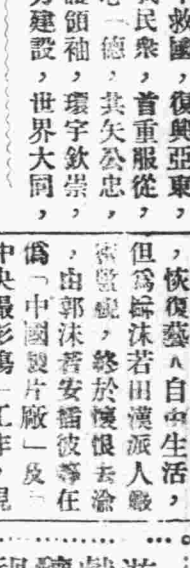 救國，復興亞東，
民衆，首重服從，
德，其矢公忠，
領袖，環宇欽崇，
建設，世界大同，
，恢復藝人自由生活，
但爲郭沫若田漢派人嚴
監視，終於懷恨去渝
，由郭沫若安插彼等在
僞「中國製片廠」及「
中央攝影場」工作，現